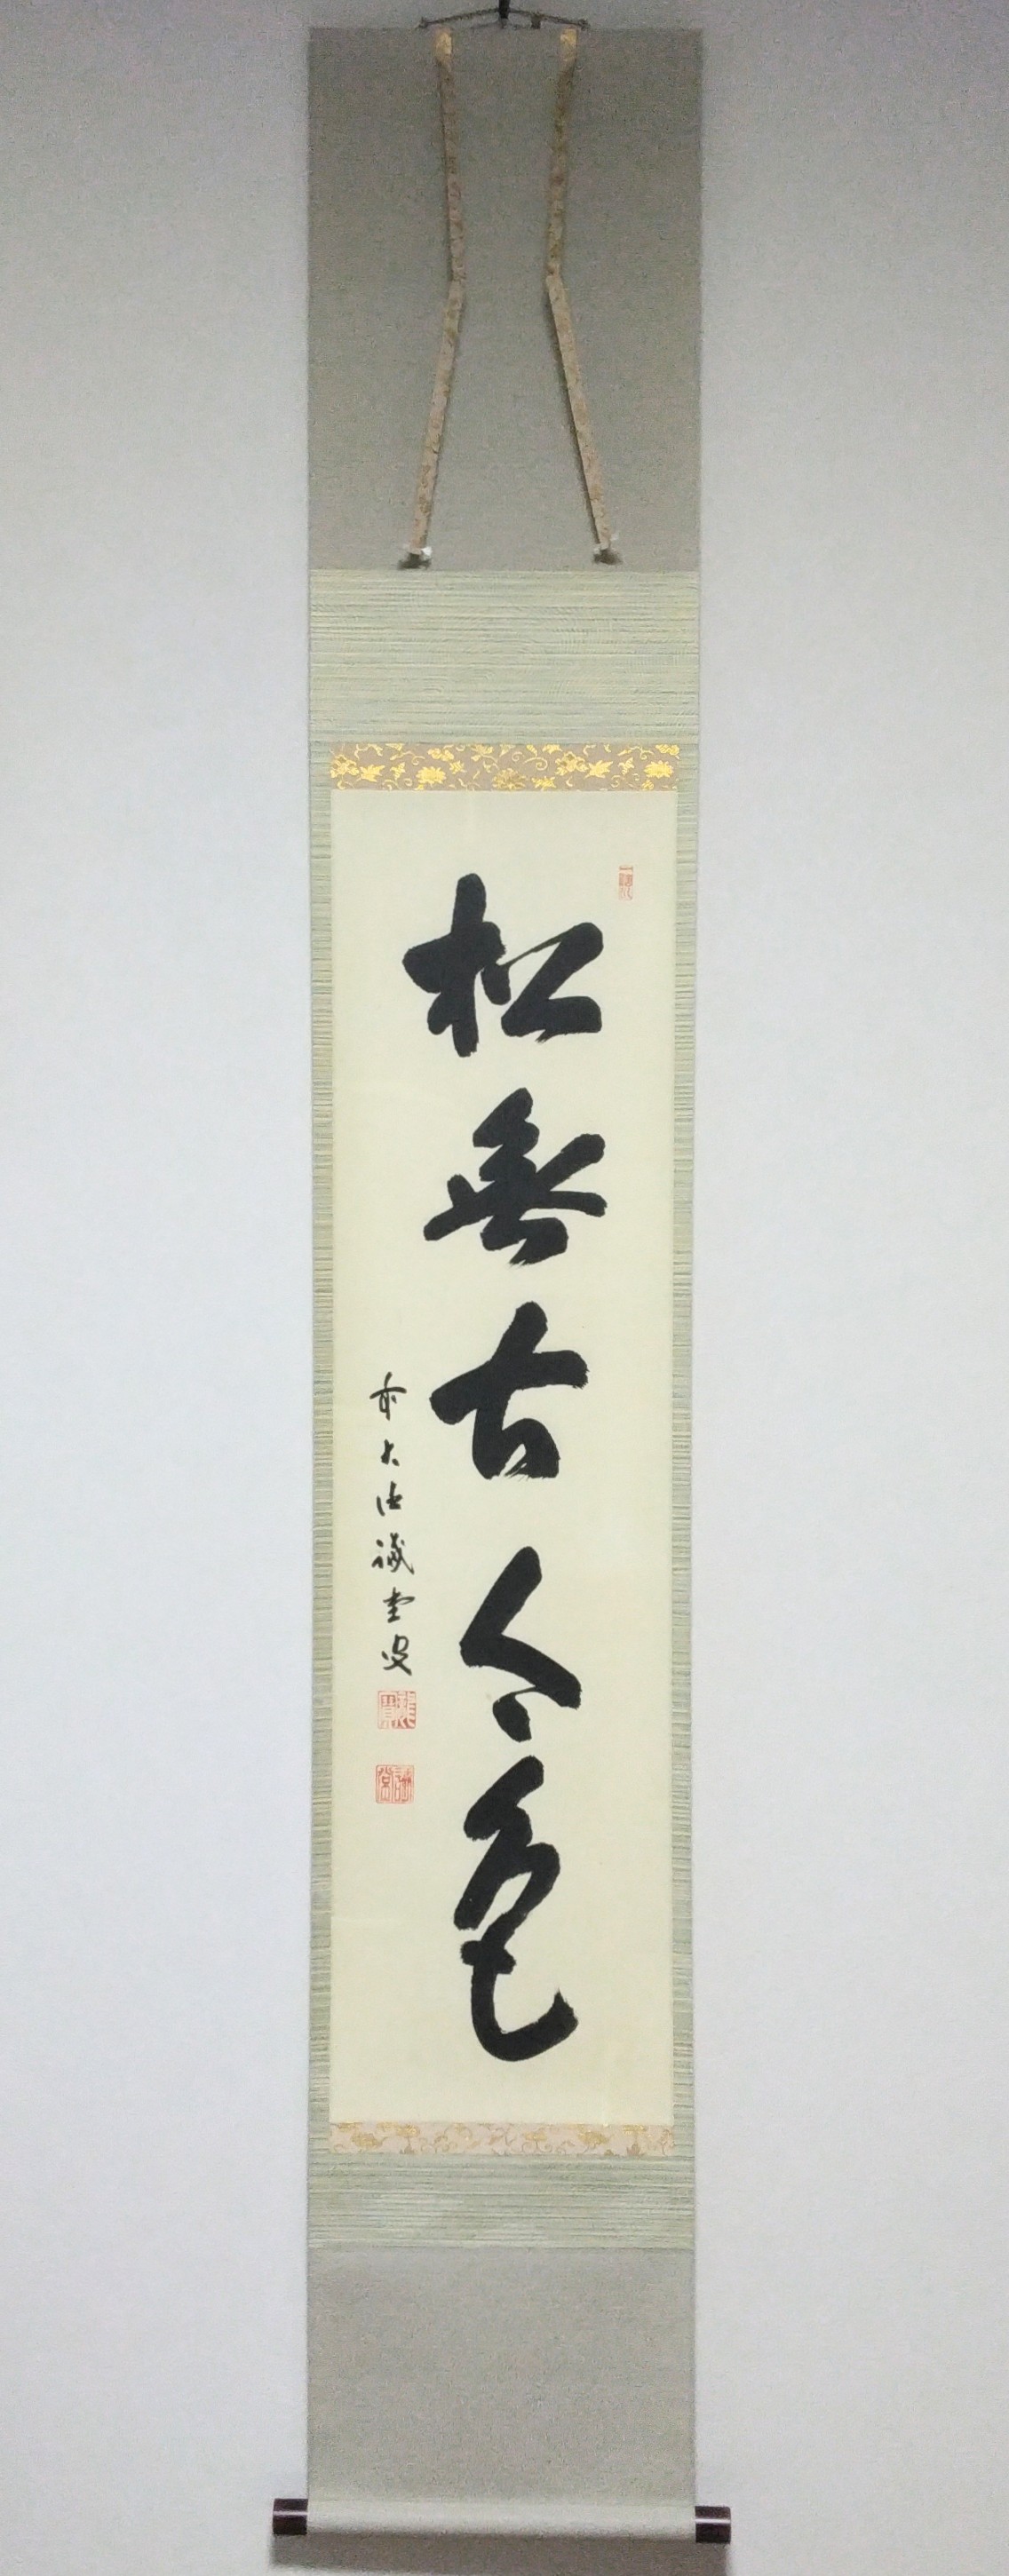 松無古今色
前大徳誡堂叟